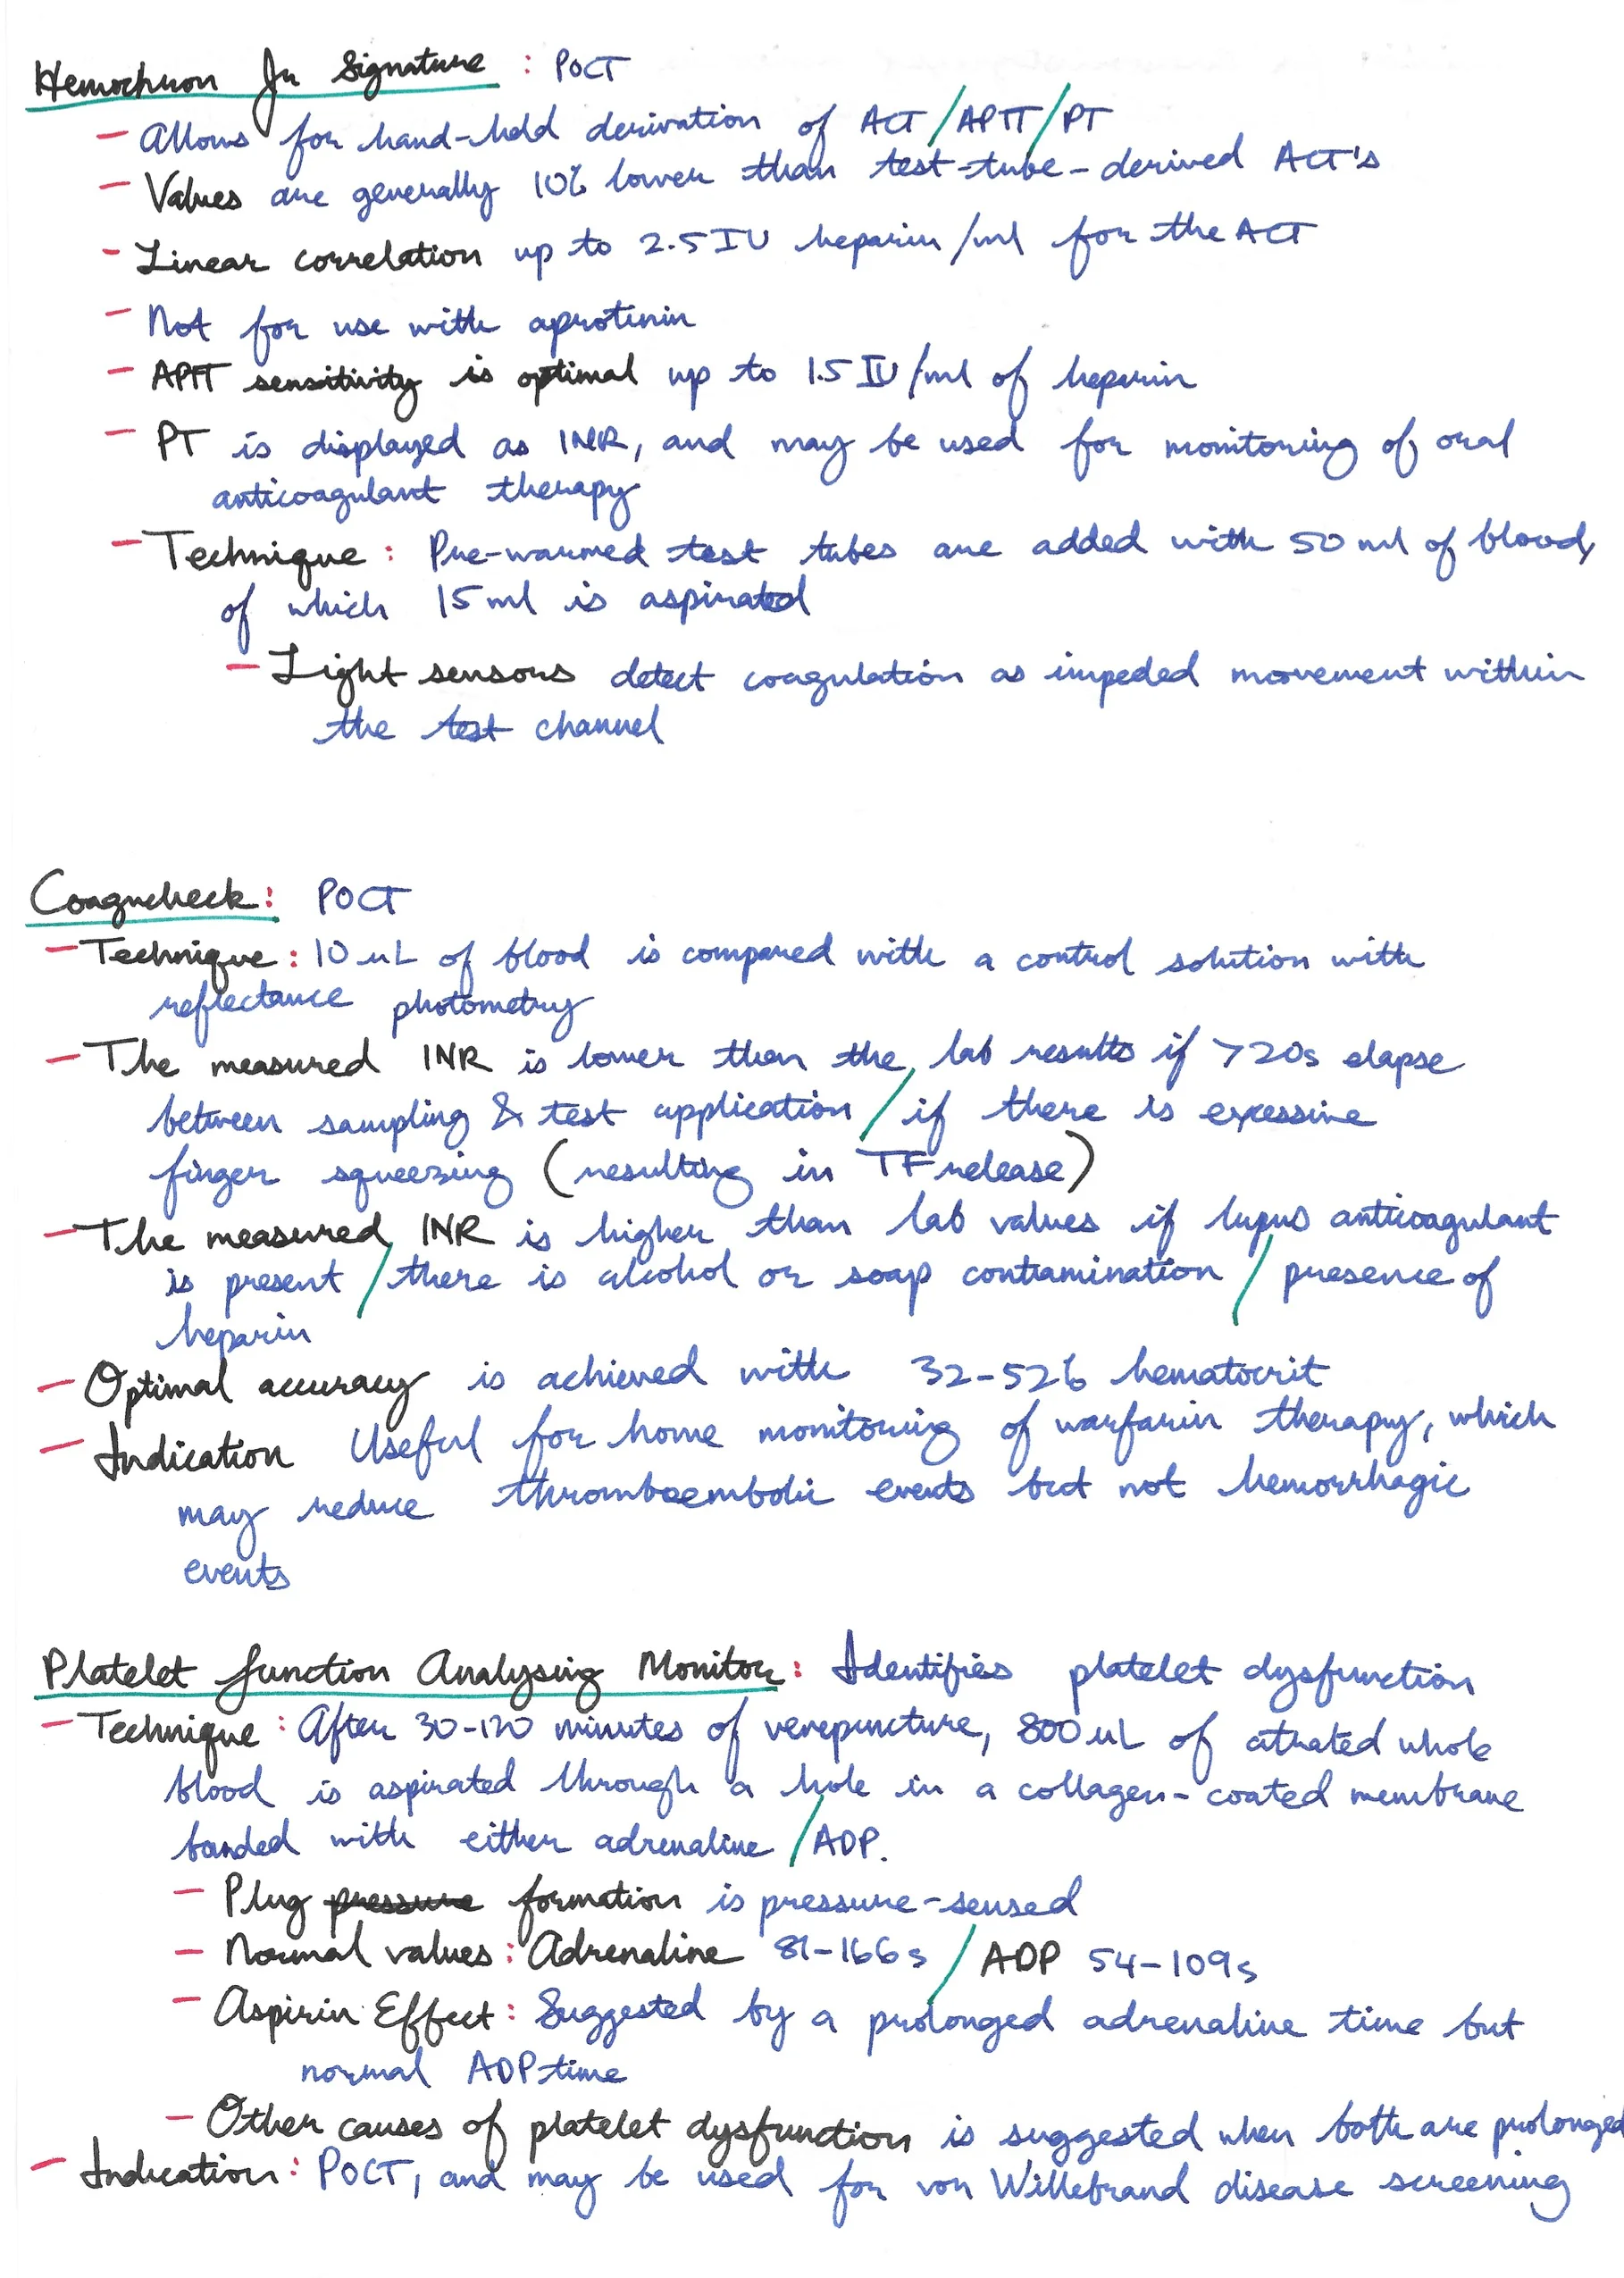 Hemochron Jr Signature : POCT
- Allows for hand-held derivation of ACT/APTT/PT
- Values are generally 10% lower than test-tube-derived ACT's
- Linear correlation up to 2.5 IU heparin/ml for the ACT
- Not for use with aprotinin
- APTT sensitivity is optimal up to 1.5 IU/ml of heparin
- PT is displayed as INR, and may be used for monitoring of oral
anticoagulant therapy
- Technique: Pre-warmed test tubes are added with 50 ml of blood,
of which 15 ml is aspirated
- Light sensors detect coagulation as impeded movement within
the test channel
Coagucheck: POCT
- Technique: 10 uL of blood is compared with a control solution with
reflectance photometry
- The measured INR is lower than the lab results if >20s elapse
between sampling & test application / if there is excessive
finger squeezing (resulting in TF release)
- The measured INR is higher than lab values if lupus anticoagulant
is present / there is alcohol or soap contamination / presence of
heparin
- Optimal accuracy is achieved with 32-52% hematocrit
- Indication Useful for home monitoring of warfarin therapy, which
may reduce thromboembolic events but not hemorrhagic
events
Platelet function Analysing Monitor: Identifies platelet dysfunction
- Technique: After 30-120 minutes of venepuncture, 800 uL of citrated whole
blood is aspirated through a hole in a collagen-coated membrane
bonded with either adrenaline / ADP.
- Plug pressure formation is pressure-sensed
- Normal values: Adrenaline 81-166s / ADP 54-109s
- Aspirin Effect: Suggested by a prolonged adrenaline time but
normal ADP time
- Other causes of platelet dysfunction is suggested when both are prolonged
- Indication: POCT, and may be used for von Willebrand disease screening